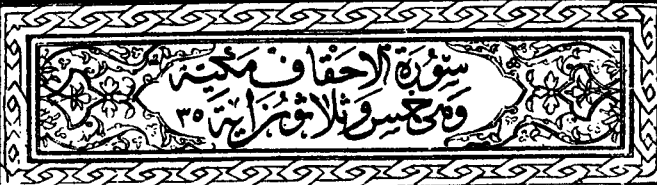 سُورَةُ الْاَحْقَافِ مَكِّيَّةٌ
وَهِيَ خَمْسٌ وَثَلَاثُونَ اٰيَةً ٣٥